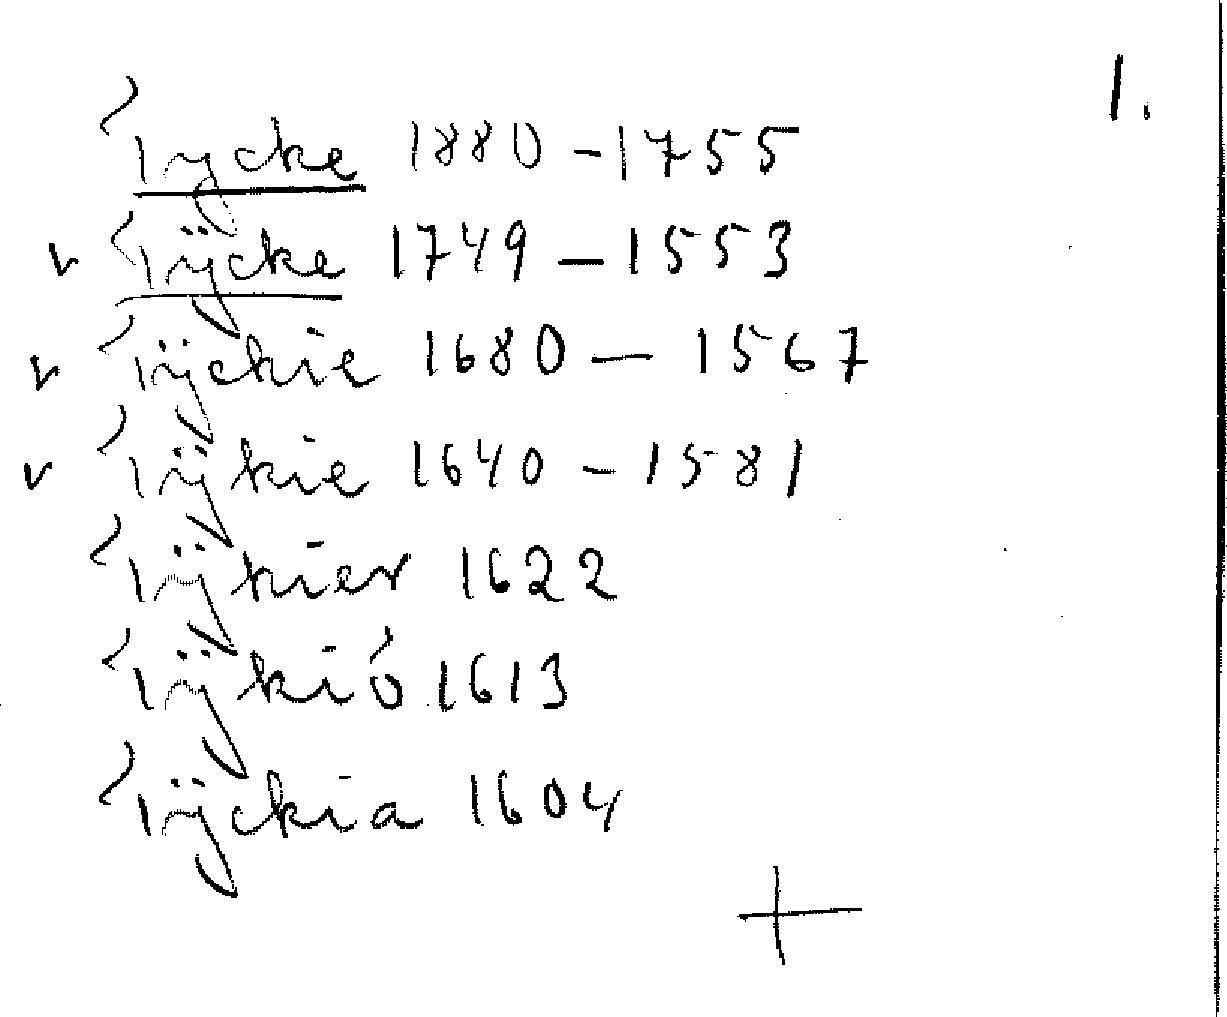 1.
Tycke 1880 – 1755
v Tÿcke 1749 – 1553
v Tÿckie 1680 – 1567
v Tÿkie 1640 – 1581
Tÿkier 1622
Tÿkió 1613
Tÿckia 1604
+